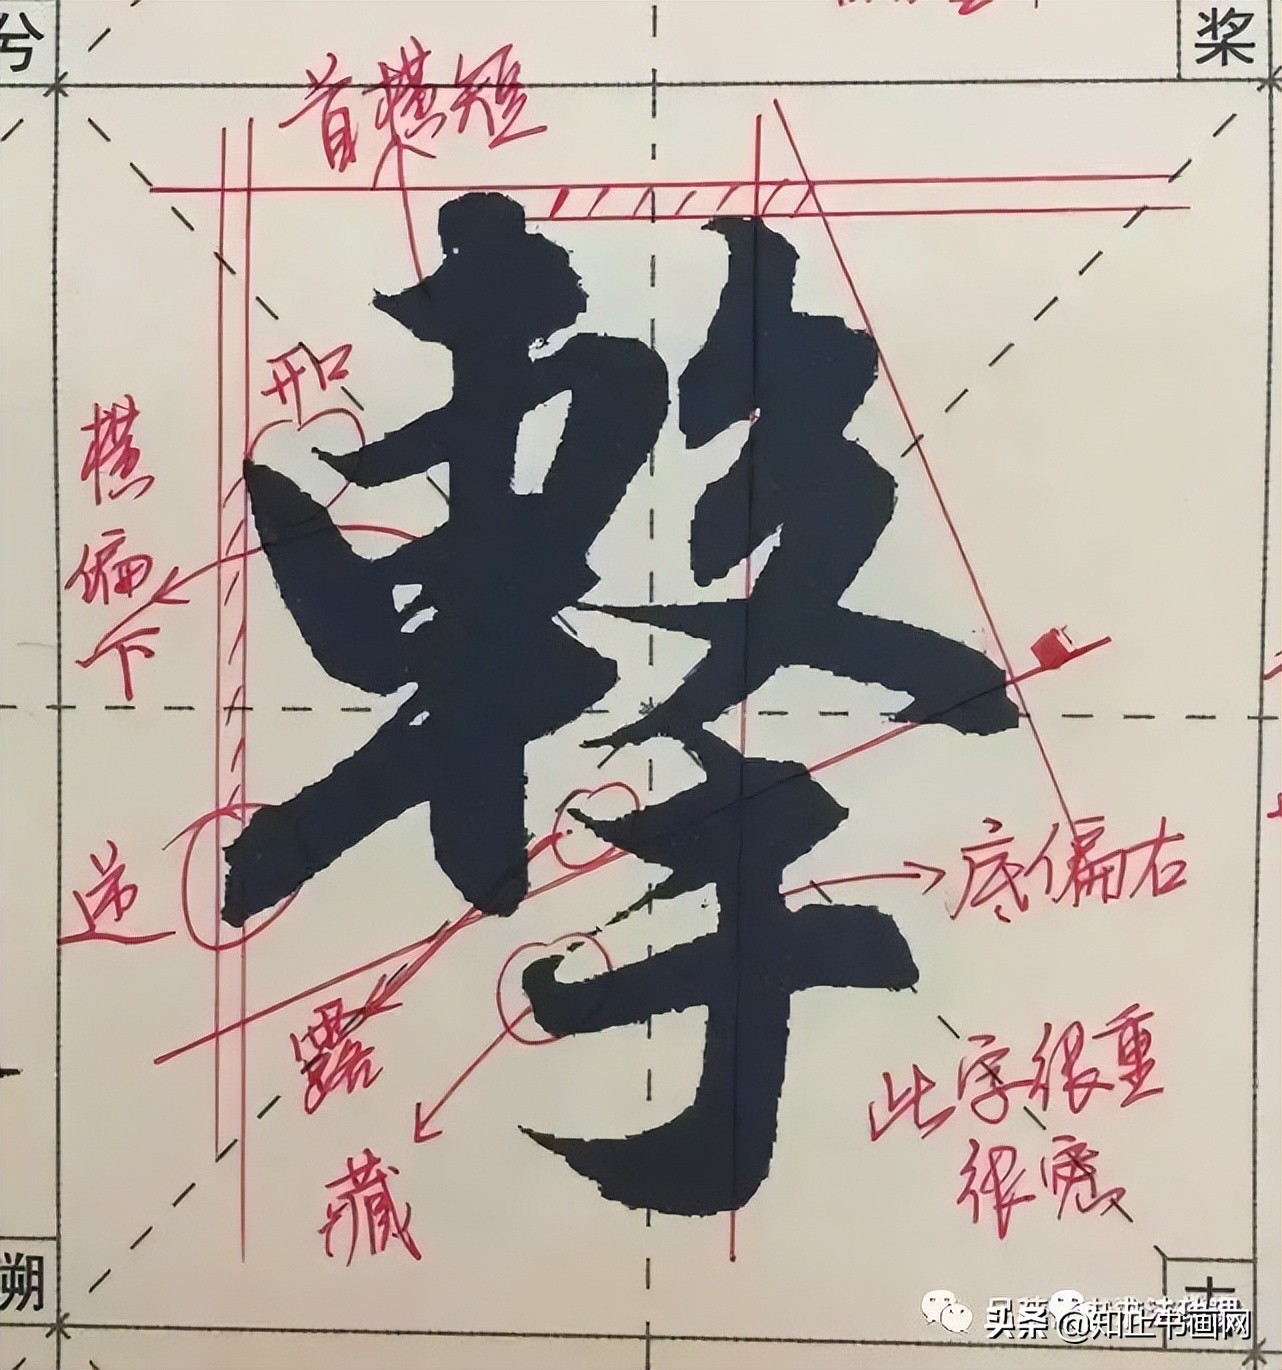 兮
桨
首横短
开口
横偏下
擊
逆
露
藏
底偏右
此字很重
很宽
朔
头条 @知止书画网